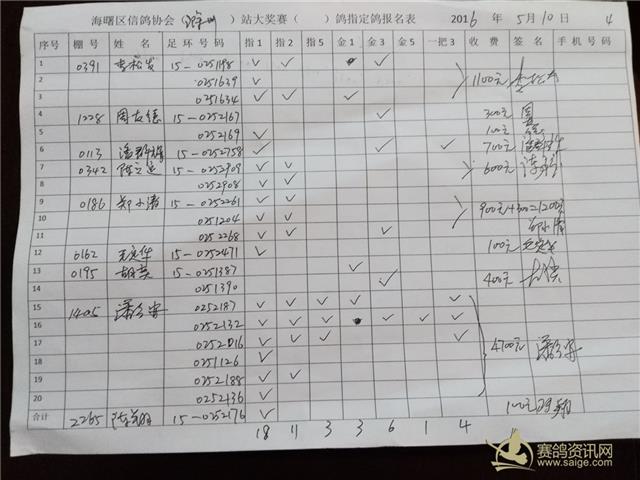 海曙区信鸽协会（ ）站大奖赛（ ）鸽指定鸽报名表 2016年 5月10日 4
序号 棚号 姓名 足环号码 指1 指2 指5 金1 金3 金5 一把3 收费 签名 手机号码
1 0391 李松发 15-0251198 ✓ ✓ ✓ 1100元
2 0251639 ✓
3 0251634 ✓ ✓ ✓
4 1228 周友德 15-0252167 ✓ 300元 周
5 0252169 ✓ 100元
6 0113 15-0252758 ✓ ✓ ✓ 700元
7 0342 15-0252909 ✓ ✓ 600元
8 0252908 ✓ ✓
9 0186 郑小清 15-0252261 ✓ ✓ ✓ 900元+300=1200元
10 0251204 ✓ ✓
11 0252268 ✓ ✓ ✓ 郑小清
12 0162 王定华 15-0252471 ✓ 100元 王定华
13 0195 胡英 15-0251387 ✓
14 0251390 ✓ 400元 胡英
15 1405 0252187 ✓ ✓ ✓ ✓ ✓
16 0252132 ✓ ✓ ✓ ✓ ✓ ✓
17 0252016 ✓ ✓ ✓ ✓ 4700元
18 0251126 ✓
19 0252188 ✓ ✓
20 0252136 ✓
合计 2265 15-0252176 ✓ 100元
18 11 3 3 6 1 4
赛鸽资讯网
www.saige.com